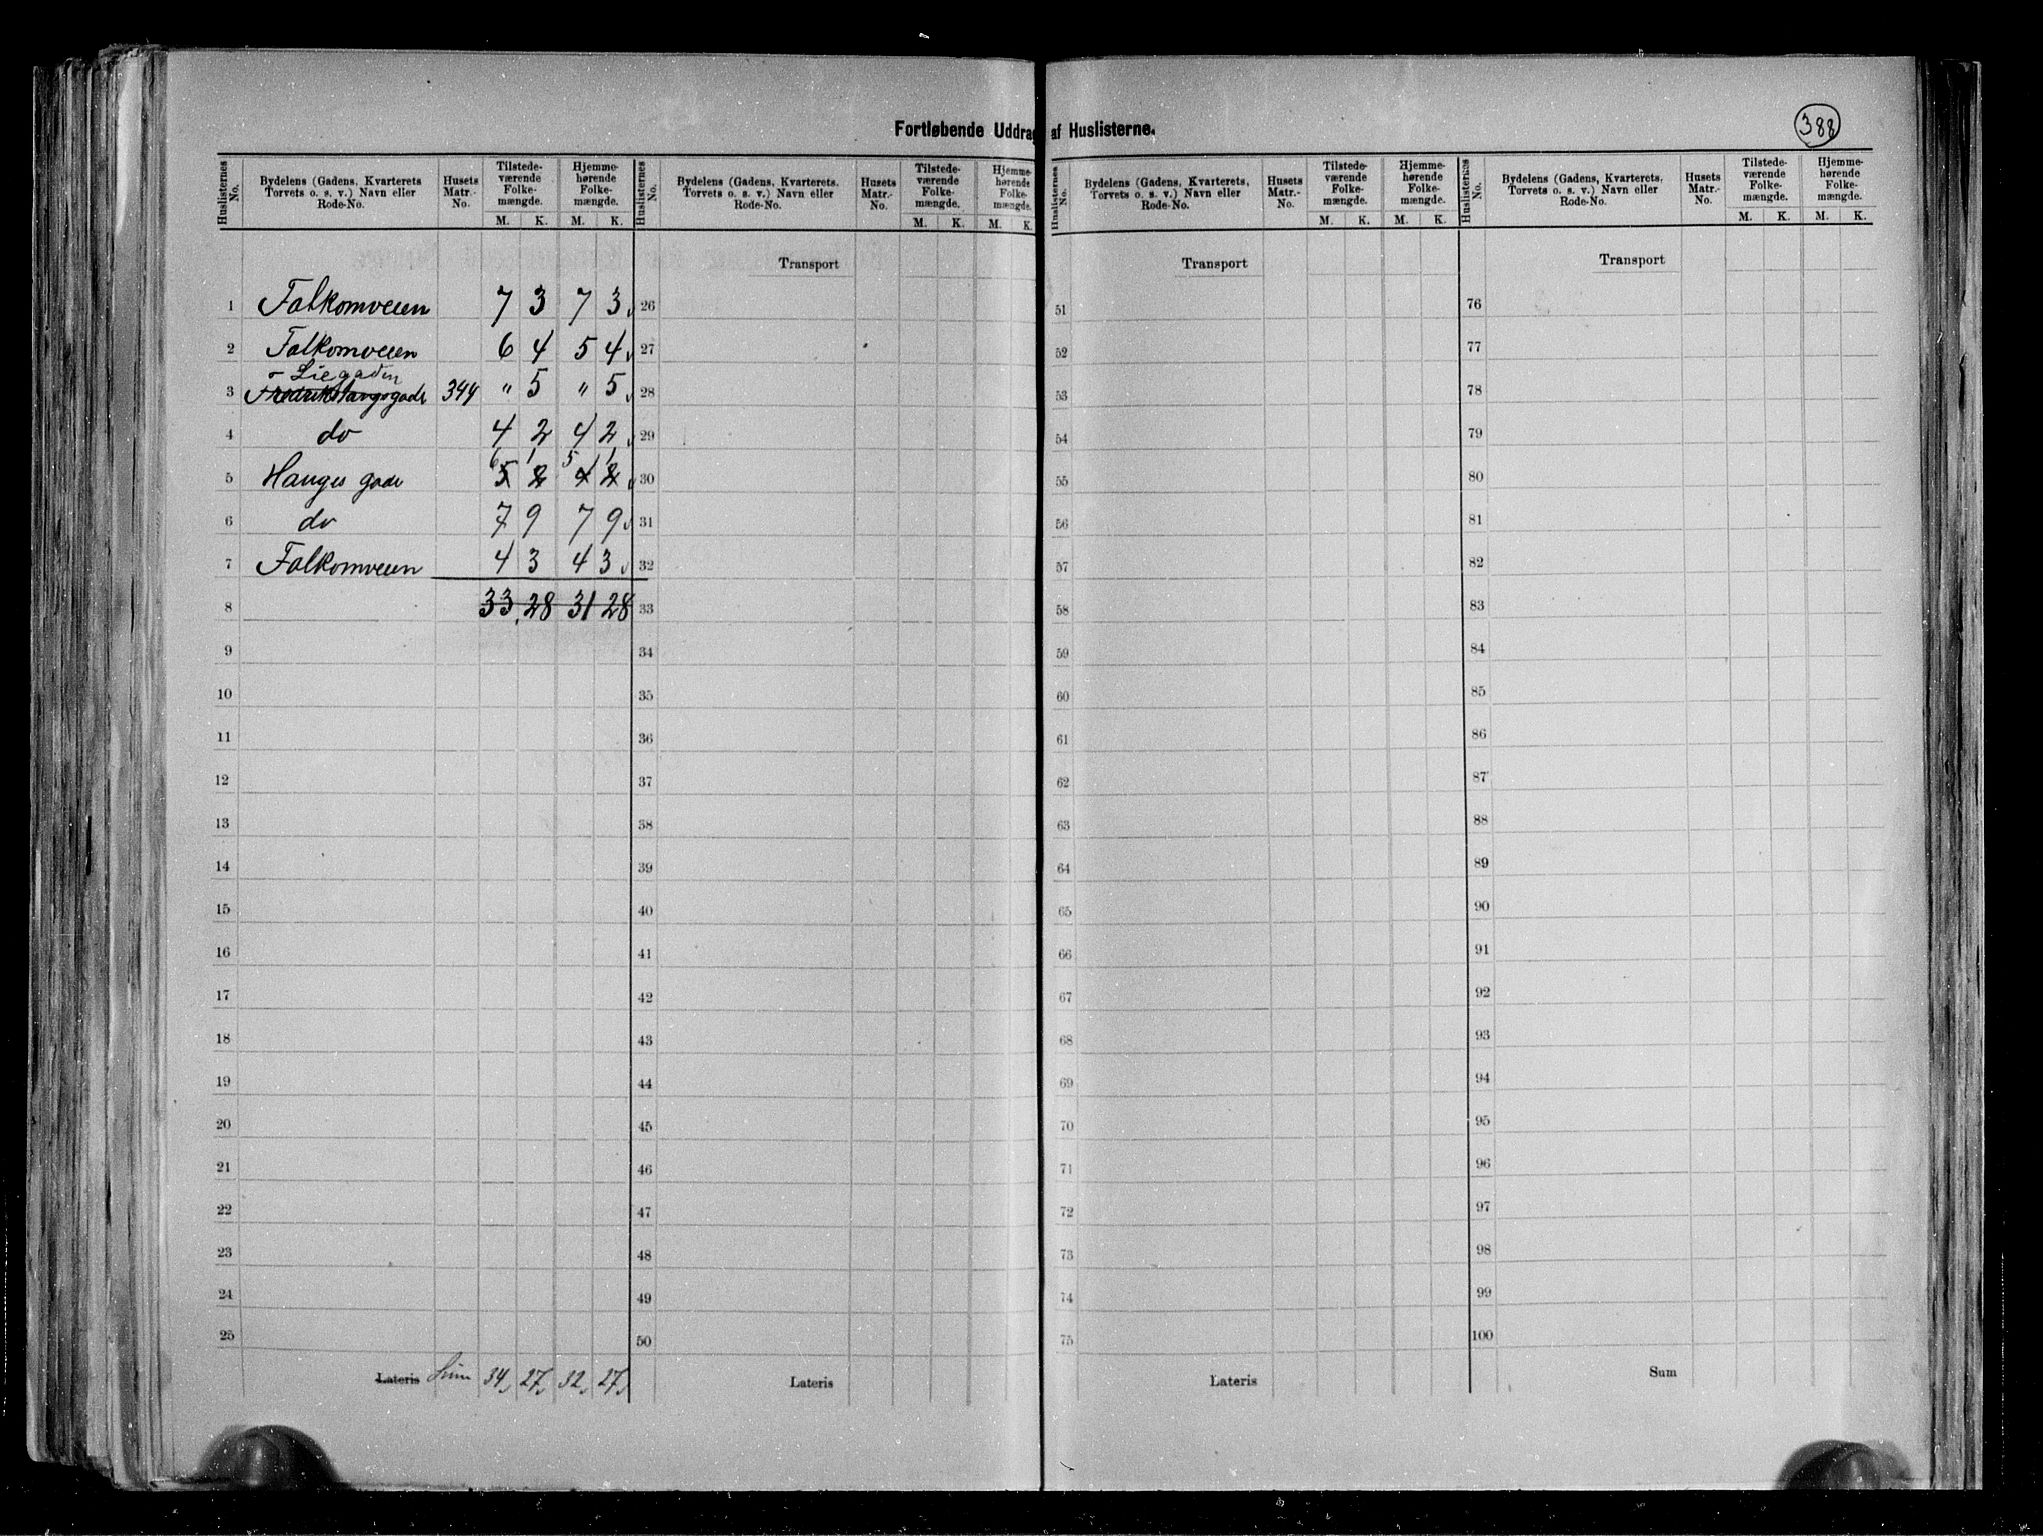 388
Fortløbende Uddrag af Huslisterne.
Huslisternes No. Bydelens (Gadens, Kvarterets Torvets o. s. v.) Navn eller Rode-No. Husets Matr.-No. Tilstede-værende Folke-mængde. M. K. Hjemme-hørende Folke-mængde. M. K.
Huslisternes No. Bydelens (Gadens, Kvarterets. Torvets o. s. v.) Navn eller Rode-No. Husets Matr.-No. Tilstede-værende Folke-mængde. M. K. Hjemme-hørende Folke-mængde. M. K.
Huslisternes No. Bydelens (Gadens, Kvarterets, Torvets o. s. v.) Navn eller Rode-No. Husets Matr.-No. Tilstede-værende Folke-mængde. M. K. Hjemme-hørende Folke-mængde. M. K.
Huslisternes No. Bydelens (Gadens, Kvarterets, Torvets o. s. v.) Navn eller Rode-No. Husets Matr.-No. Tilstede-værende Folke-mængde. M. K. Hjemme-hørende Folke-mængde. M. K.
1 Falkomveien 7 3 7 3
2 Falkomveien 6 4 5 4
Liegaden
3 344 " 5 " 5
4 do 4 2 4 2
6 1 5 1
5 Hauges gade 5 2 4 2
6 do 7 9 7 9
7 Falkomveien 4 3 4 3
8 33 28 31 28
9
10
11
12
13
14
15
16
17
18
19
20
21
22
23
24
25
Lateris Sum 34 27 32 27
Transport
26
27
28
29
30
31
32
33
34
35
36
37
38
39
40
41
42
43
44
45
46
47
48
49
50
Lateris
Transport
51
52
53
54
55
56
57
58
59
60
61
62
63
64
65
66
67
68
69
70
71
72
73
74
75
Lateris
Transport
76
77
78
79
80
81
82
83
84
85
86
87
88
89
90
91
92
93
94
95
96
97
98
99
100
Sum